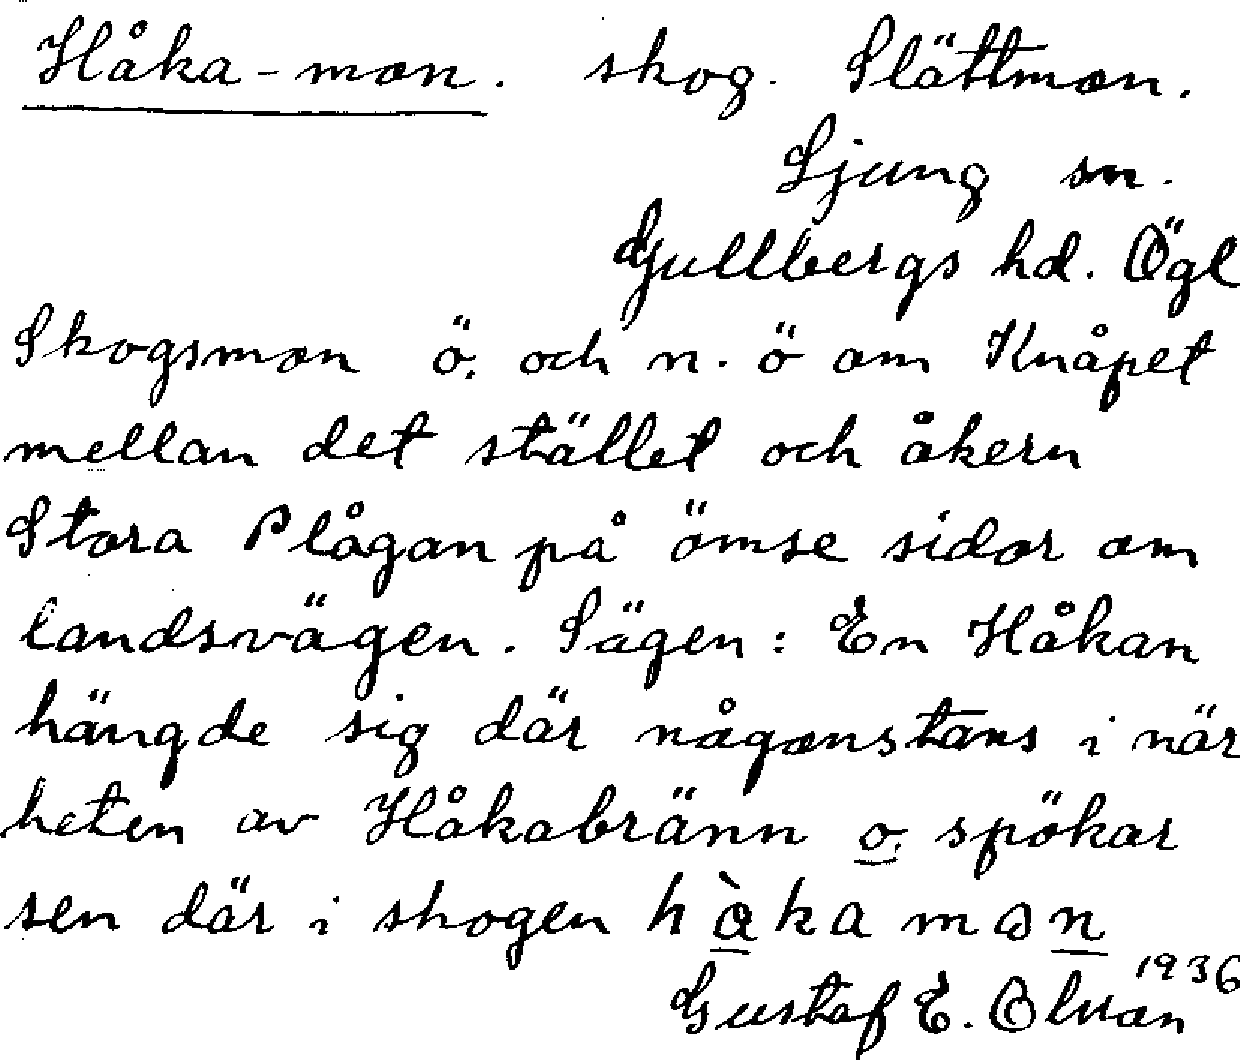 Håka-mon. skog. Slättmon.
Ljung sn.
Gullbergs hd. Ögl
Skogsmon ö. och n. ö om Knåpet
mellan det stället och åkern
Stora Plågan på ömse sidor om
landsvägen. Sägen: En Håkan
hängde sig där någonstans i när
heten av Håkabränn o. spökar
sen där i skogen
1936
Gustaf E.